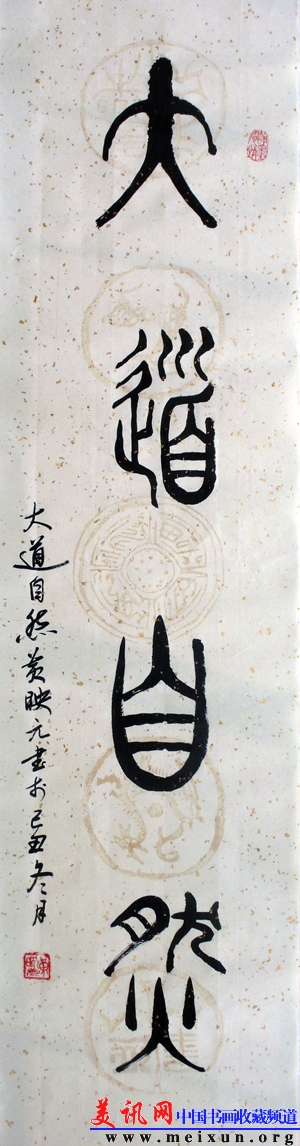 大道自然
大道自然黄映元書於己丑冬月
美讯网 中国书画收藏频道
www.meixun.org